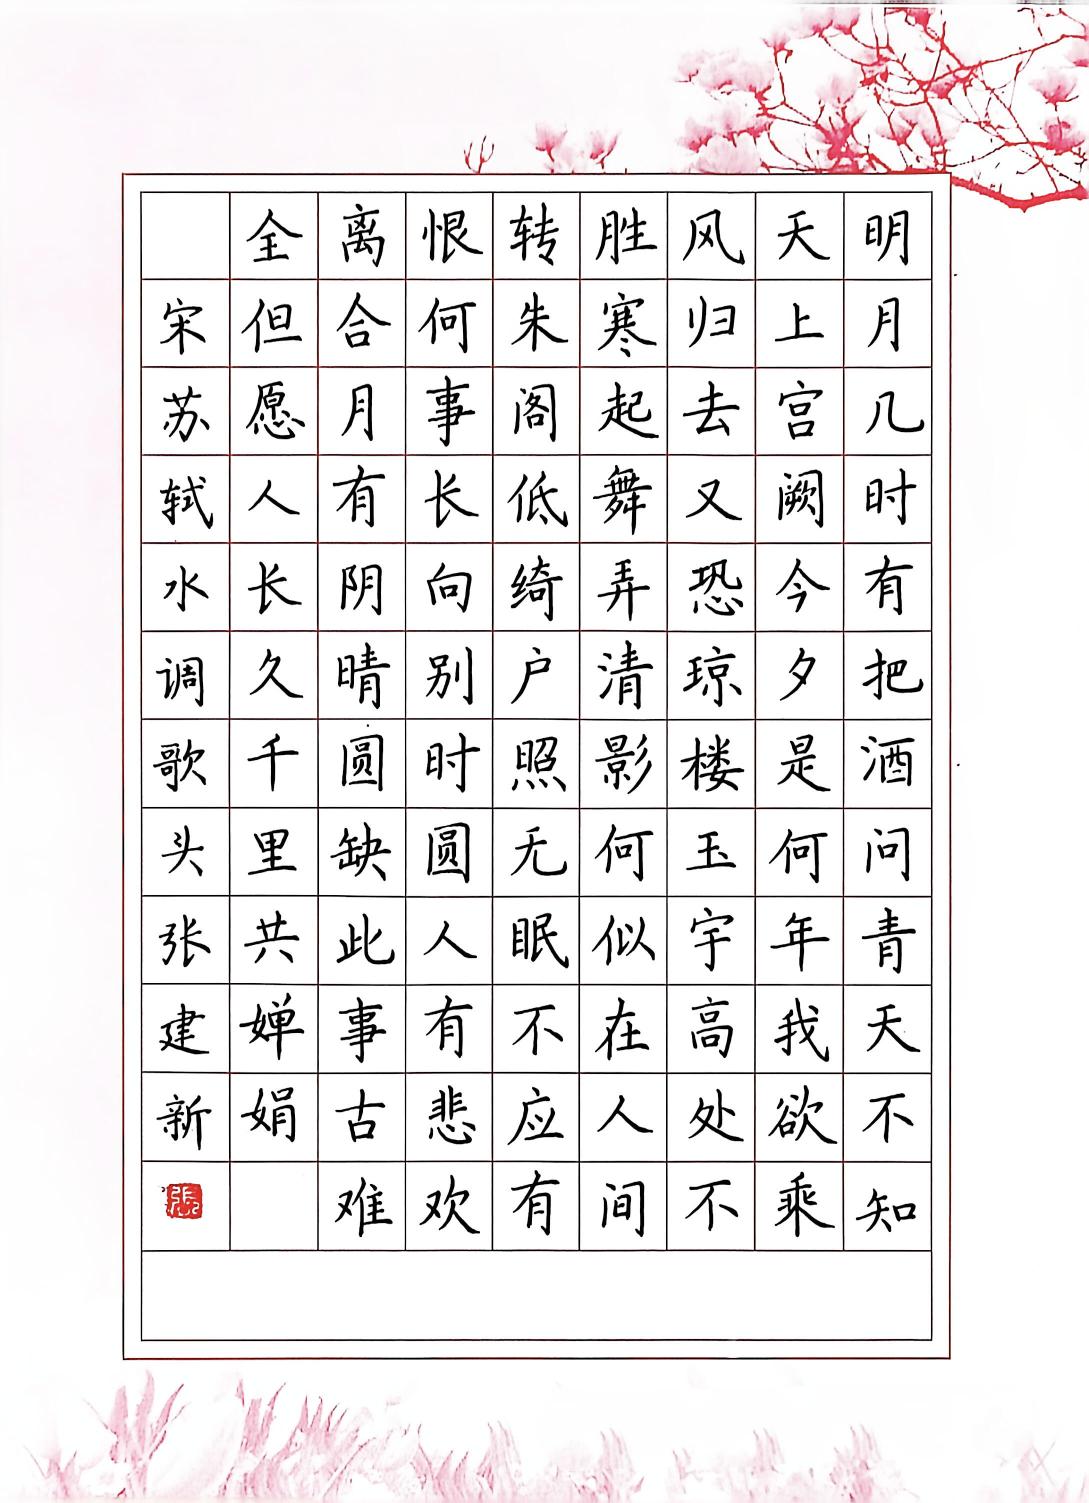 明月几时有把酒问青天不知
天上宫阙今夕是何年我欲乘
风归去又恐琼楼玉宇高处不
胜寒起舞弄清影何似在人间
转朱阁低绮户照无眠不应有
恨何事长向别时圆人有悲欢
离合月有阴晴圆缺此事古难
全但愿人长久千里共婵娟
宋苏轼水调歌头张建新